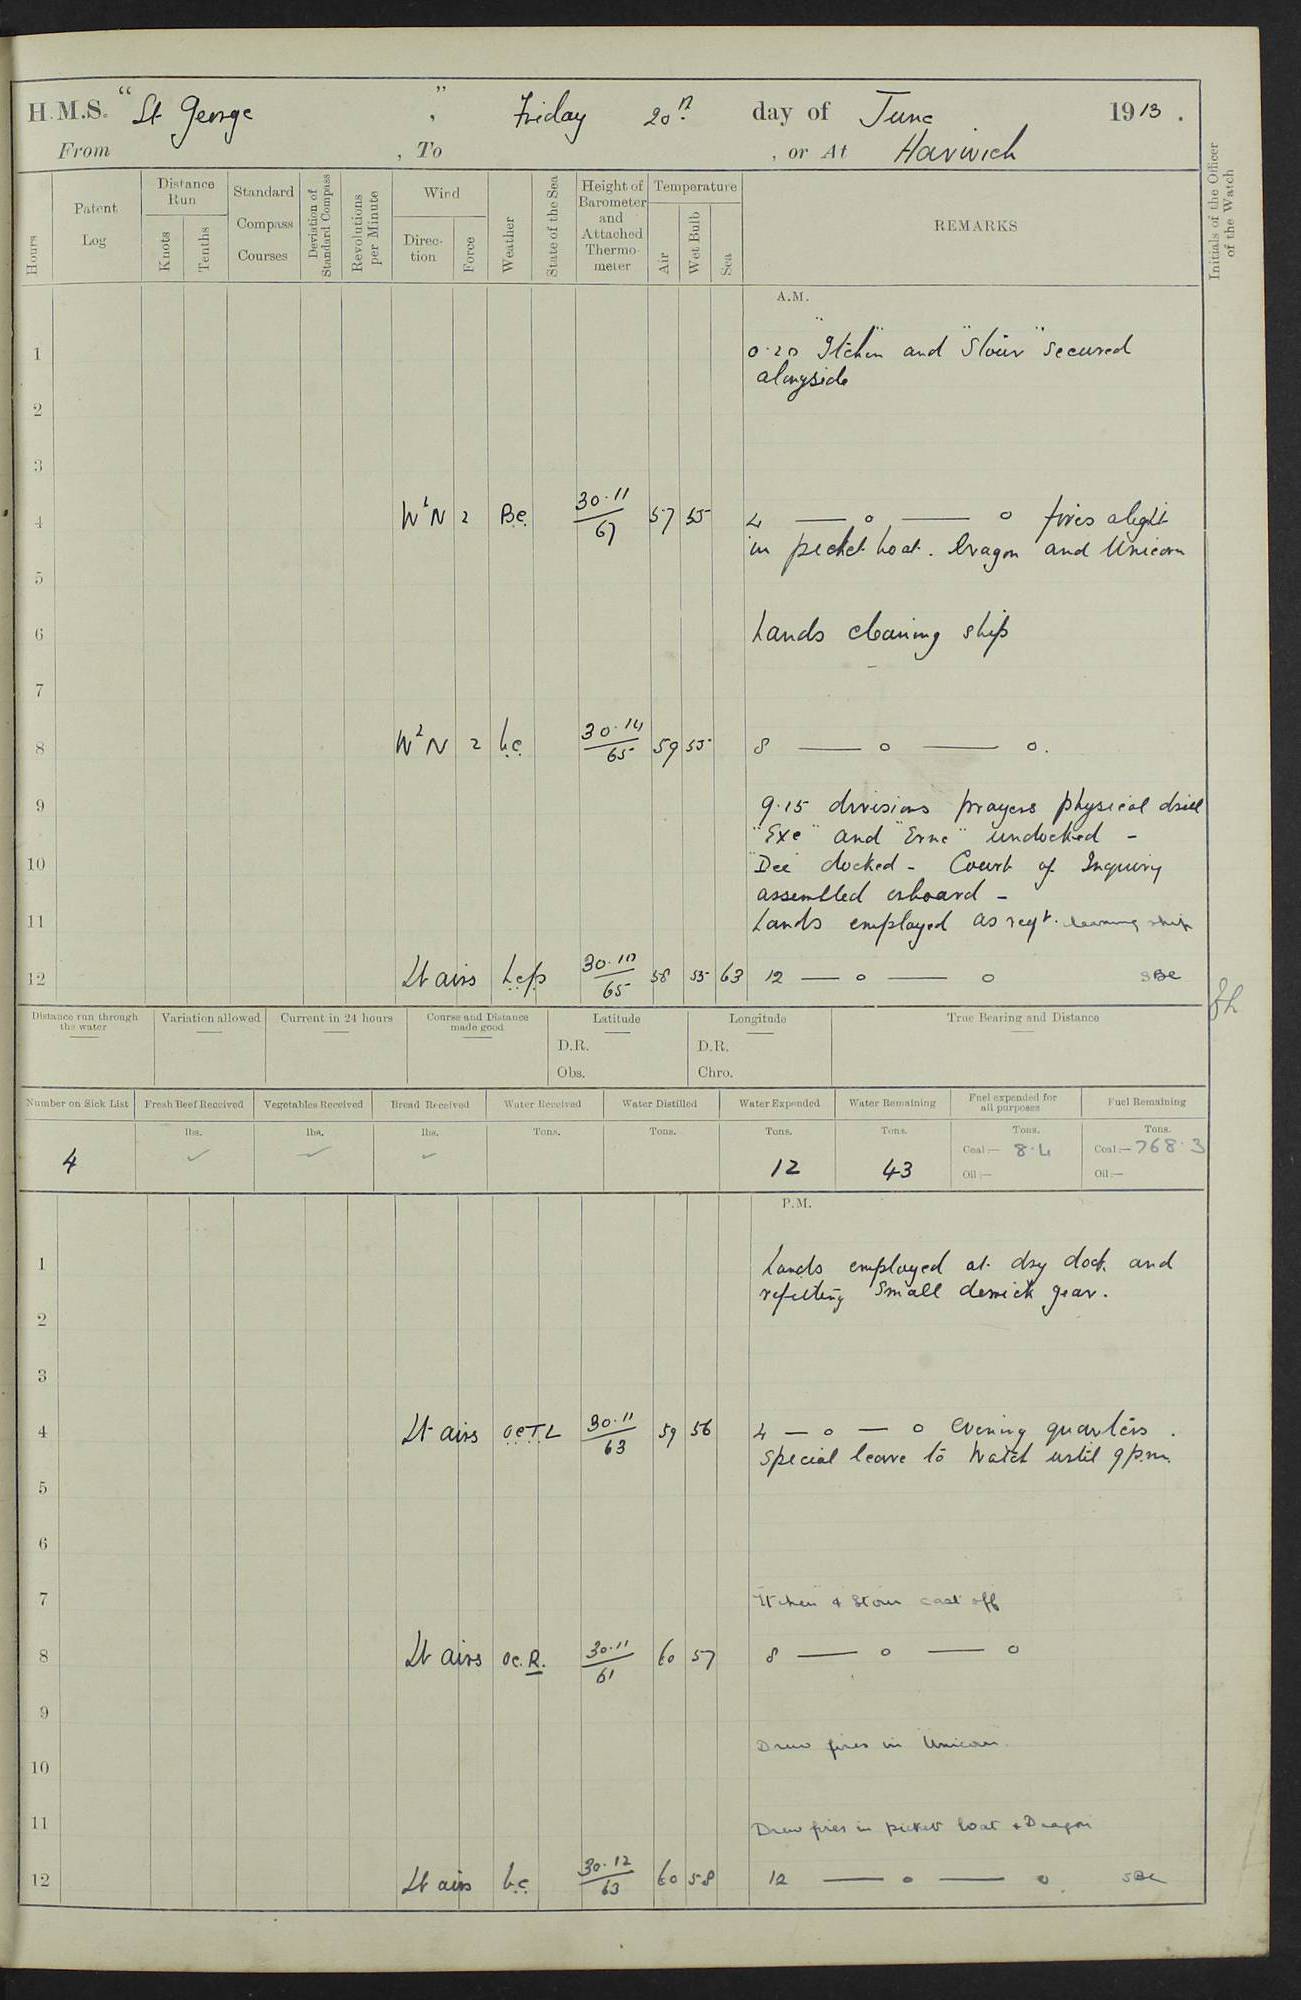 H.M.S. "St George", Friday 20th day of June 1913.
From , To , or At Harwich
Hours
Patent Log
Distance Run
Knots
Tenths
Standard Compass Courses
Deviation of Standard Compass
Revolutions per Minute
Wind
Direction
Force
Weather
State of the Sea
Height of Barometer and Attached Thermometer
Temperature
Air
Wet Bulb
Sea
REMARKS
Initials of the Officer of the Watch
A.M.
1 0.20 "Itchen" and "Stour" secured
alongside
2
3
4 W'N 2 B.C. 30.11/67 57 55 4 — o — o fires alight
in picket boat. Dragon and Unicorn
5
6 hands cleaning ship
7
8 W'N 2 b.c. 30.14/65 59 55 8 — o — o.
9 9.15 divisions prayers physical drill
"Exe" and "Erne" undocked -
10 "Dee" docked - Court of Inquiry
assembled onboard -
11 hands employed as reqt. cleaning ship
12 Lt airs b.c.p 30.10/65 58 55 63 12 — o — o SBC
Distance run through the water
Variation allowed
Current in 24 hours
Course and Distance made good
Latitude
D.R.
Obs.
Longitude
D.R.
Chro.
True Bearing and Distance
Number on Sick List
Fresh Beef Received
Vegetables Received
Bread Received
Water Received
Water Distilled
Water Expended
Water Remaining
Fuel expended for all purposes
Fuel Remaining
lbs. lbs. lbs. Tons. Tons. Tons. Tons. Tons. Tons.
4 12 43 Coal:— 8.4 Coal:— 768.3
Oil:— Oil:—
P.M.
1 hands employed at dry dock and
refitting small derrick gear.
2
3
4 Lt airs o.c.T.L 30.11/63 59 56 4 — o — o evening quarters.
special leave to watch until 9 p.m.
5
6
7 Itchen & Stour cast off
8 Lt airs o.c.R. 30.11/61 60 57 8 — o — o
9
Drew fires in Unicorn.
10
11 Drew fires in picket boat & Dragon
12 Lt airs b.c. 30.12/63 60 58 12 — o — o SBC